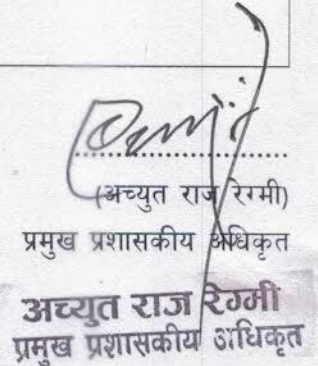 (अच्युत राज रेग्मी)
प्रमुख प्रशासकीय अधिकृत
अच्युत राज रेग्मी
प्रमुख प्रशासकीय अधिकृत